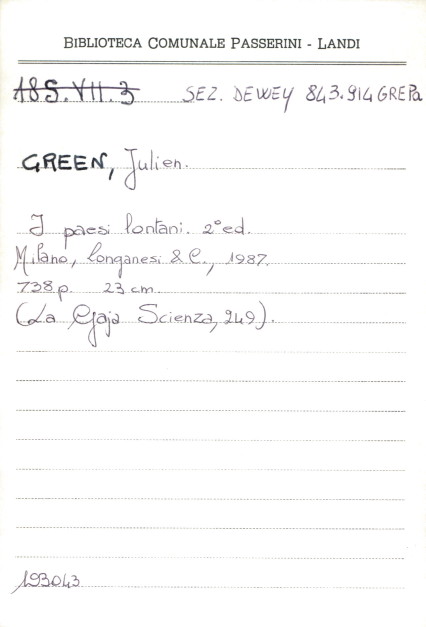 BIBLIOTECA COMUNALE PASSERINI - LANDI
18S.VII.3 SEZ. DEWEY 843.914 GREPa
GREEN, Julien.
I paesi lontani. 2° ed.
Milano, Longanesi & C., 1987.
738 p. 23 cm.
(La Gaja Scienza, 249).
193043